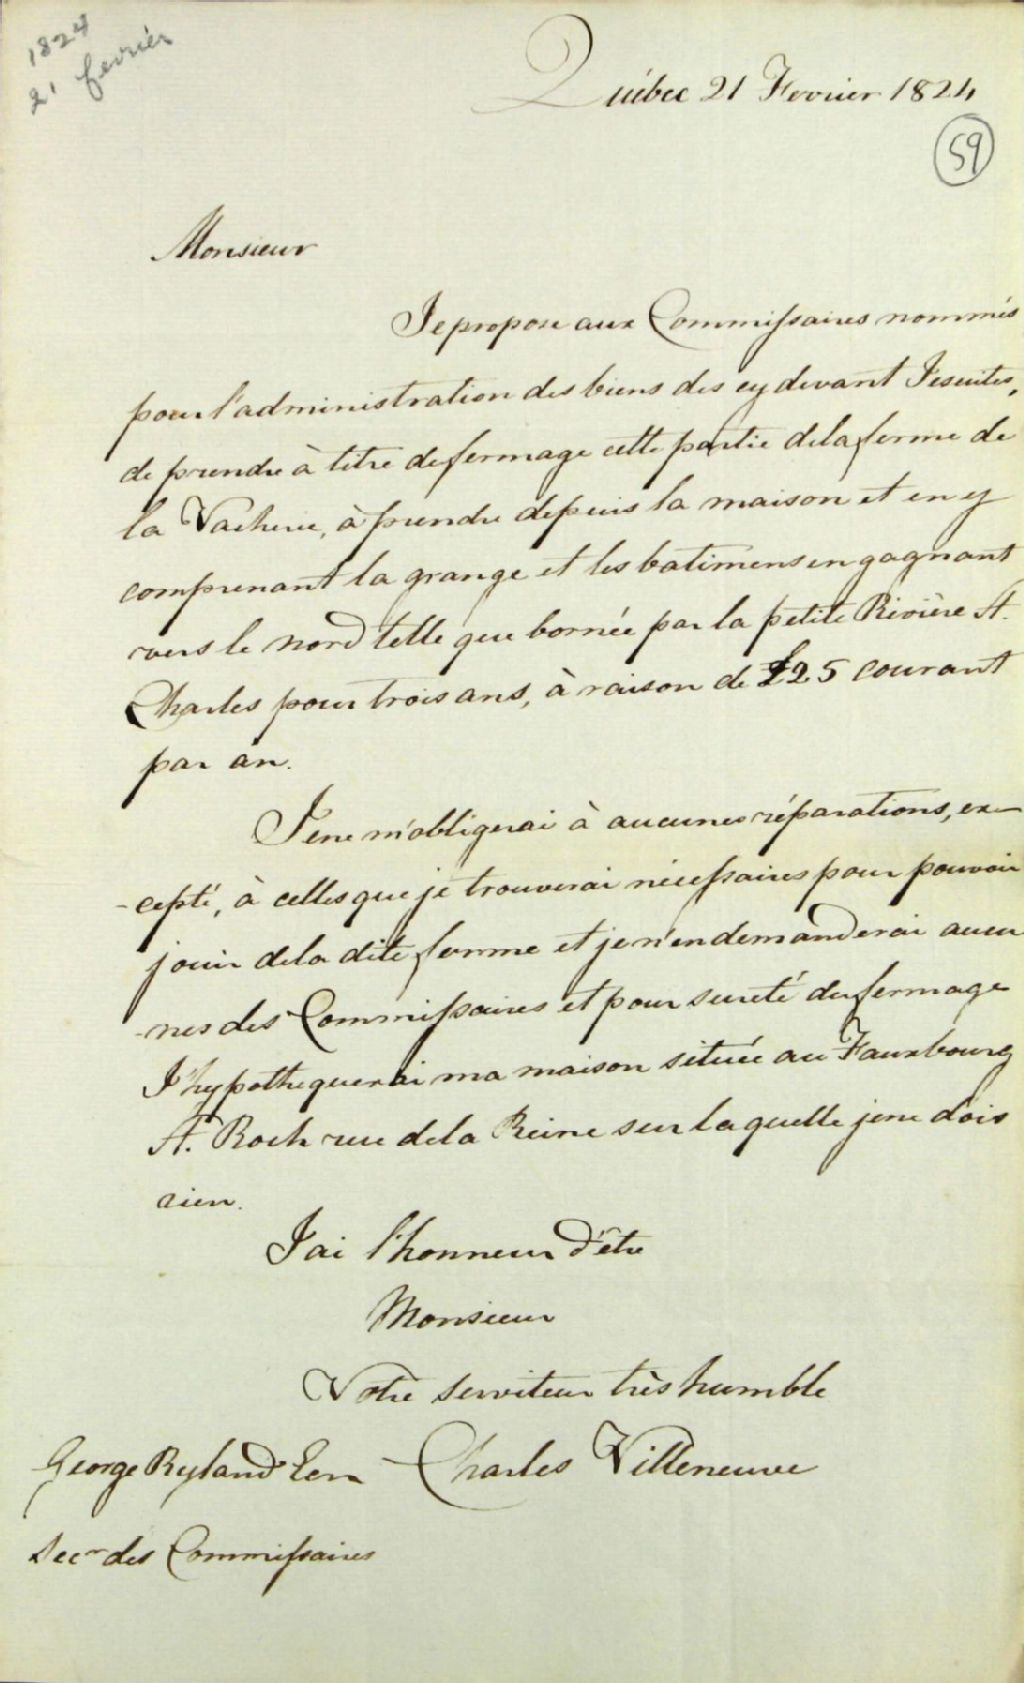 1824
21 fevrier
Québec 21 Fevrier 1824
59
Monsieur
Je propose aux Commissaires nommés
pour l'administration des biens des cy devant Jesuites,
de prendre à titre de fermage cette partie de la ferme de
la Vacherie, à prendre depuis la maison et en y
comprenant la grange et les batimens en gagnant
vers le nord telle que bornée par la petite Rivière St.
Charles pour trois ans, à raison de £25 courant
par an.
Je ne m'obligerai à aucunes réparations, ex-
-cepté, à celles que je trouverai nécessaires pour pouvoir
jouir de la dite ferme et je n'en demanderai aucu
-nes des Commissaires et pour sureté du fermage
J'hypothequerai ma maison située au Fauxbourg
St. Roch rue de la Reine sur laquelle je ne dois
rien.
J'ai l'honneur d'être
Monsieur
Votre serviteur très humble
George Ryland Charles Villeneuve
Secre des Commissaires